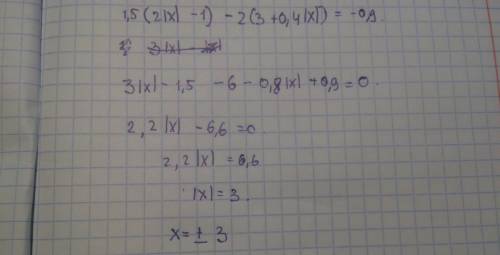 1,5(2|x| - 1) - 2(3 + 0,4|x|) = -0,9.
3|x| - 1,5 - 6 - 0,8|x| + 0,9 = 0.
2,2|x| - 6,6 = 0.
2,2|x| = 6,6
|x| = 3.
x = ± 3